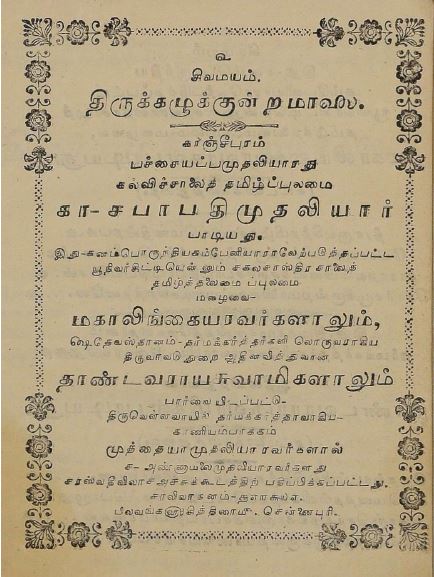 ௨
சிவமயம்.
திருக்கழுக்குன்றமாலை.
காஞ்சீபுரம்
பச்சையப்பமுதலியாரது
கல்விச்சாலைத் தமிழ்ப்புலமை
கா-சபாபதிமுதலியார்
பாடியது.
இது-கனம்பொருந்திய கம்பேனியாராலேற்படுத்தப்பட்ட
யூதிவர்சிட்டியென்னும் சகலசாஸ்திரசாலைத்
தமிழ்த்தலைமைப்புலமை
மழவை-
மகாலிங்கையரவர்களாலும்,
ஷெதேவஸ்தானம்-தர்மகர்த்தர்களிலொருவராகிய
திருவாவடுதுறை ஆதினவித்துவான்
தாண்டவராயசுவாமிகளாலும்
பார்வையிடப்பட்டு-
திருவெள்ளவாயில் தர்மகர்த்தாவாகிய-
காணியம்பாக்கம்
முத்தையாமுதலியாரவர்களால்
ச- அண்ணாமலைமுதலியாரவர்களது
சரஸ்வதிவிலாசஅச்சுக்கூடத்திற் பதிப்பிக்கப்பட்டது.
சாலிவாகனம்-
பிலவங்கஸ்ரீசித்திரைமீ. சென்னபுரி.